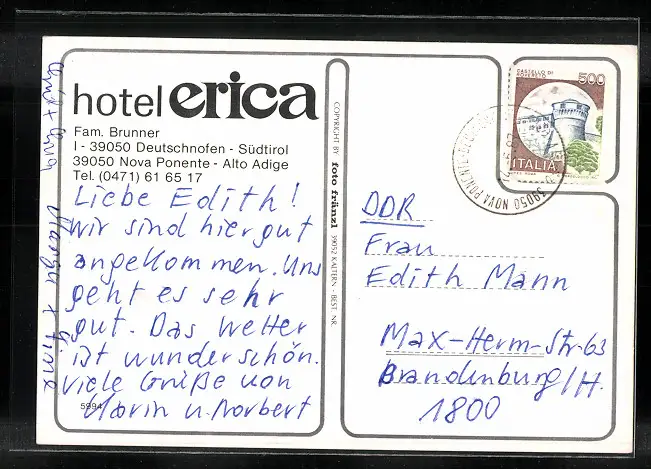 hotel erica
Fam. Brunner
I - 39050 Deutschnofen - Südtirol
39050 Nova Ponente - Alto Adige
Tel. (0471) 61 65 17
Liebe Edith!
Wir sind hier gut
angekommen. Uns
geht es sehr
gut. Das Wetter
ist wunderschön.
Viele Grüße von
Karin u. Norbert
5994
COPYRIGHT BY foto fränzl 39052 KALTERN - BEST. NR.
CASTELLO DI
ROVERETO
500
ITALIA
39050 NOVA PONENTE
DDR
Frau
Edith Mann
Max-Herm-Str. 63
Brandenburg/H.
1800